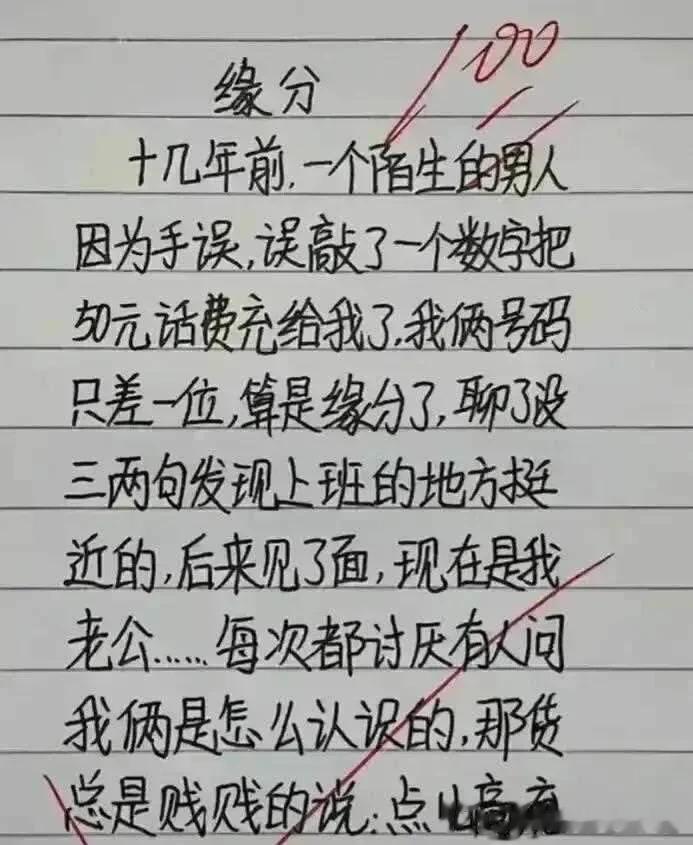 100
缘分
十几年前，一个陌生的男人
因为手误，误敲了一个数字把
50元话费充给我了，我俩号码
只差一位，算是缘分了，聊了没
三两句发现上班的地方挺
近的，后来见了面，现在是我
老公……每次都讨厌有人问
我俩是怎么认识的，那货
总是贱贱的说：点儿高充